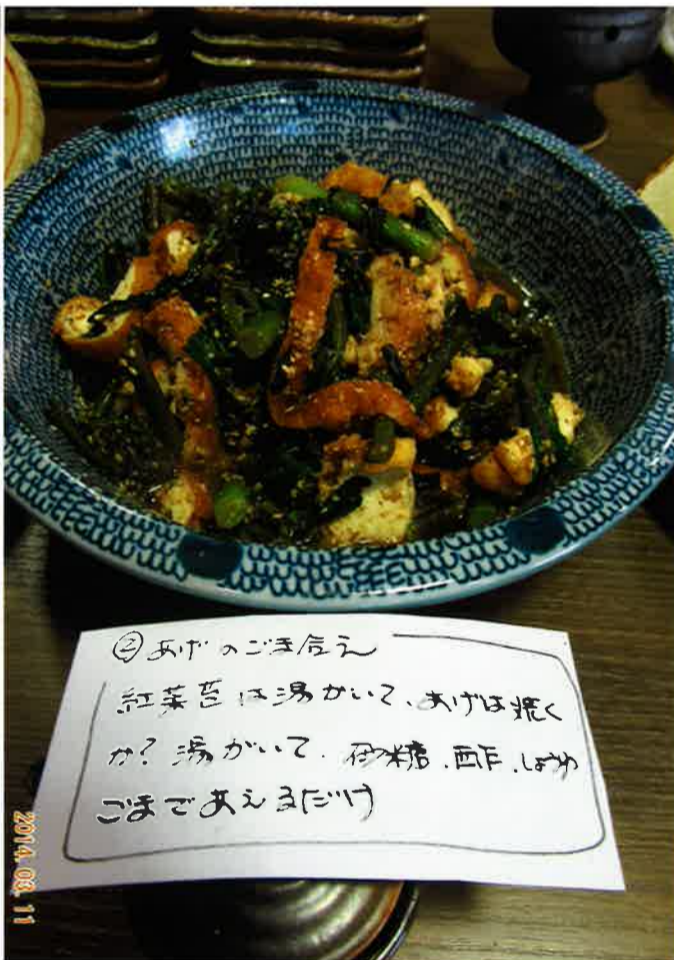 ②あげのごま合え
紅菜苔は湯がいて、あげは焼く
か?湯がいて.砂糖.酢.しょうゆ
ごまであえるだけ
2014.03.11